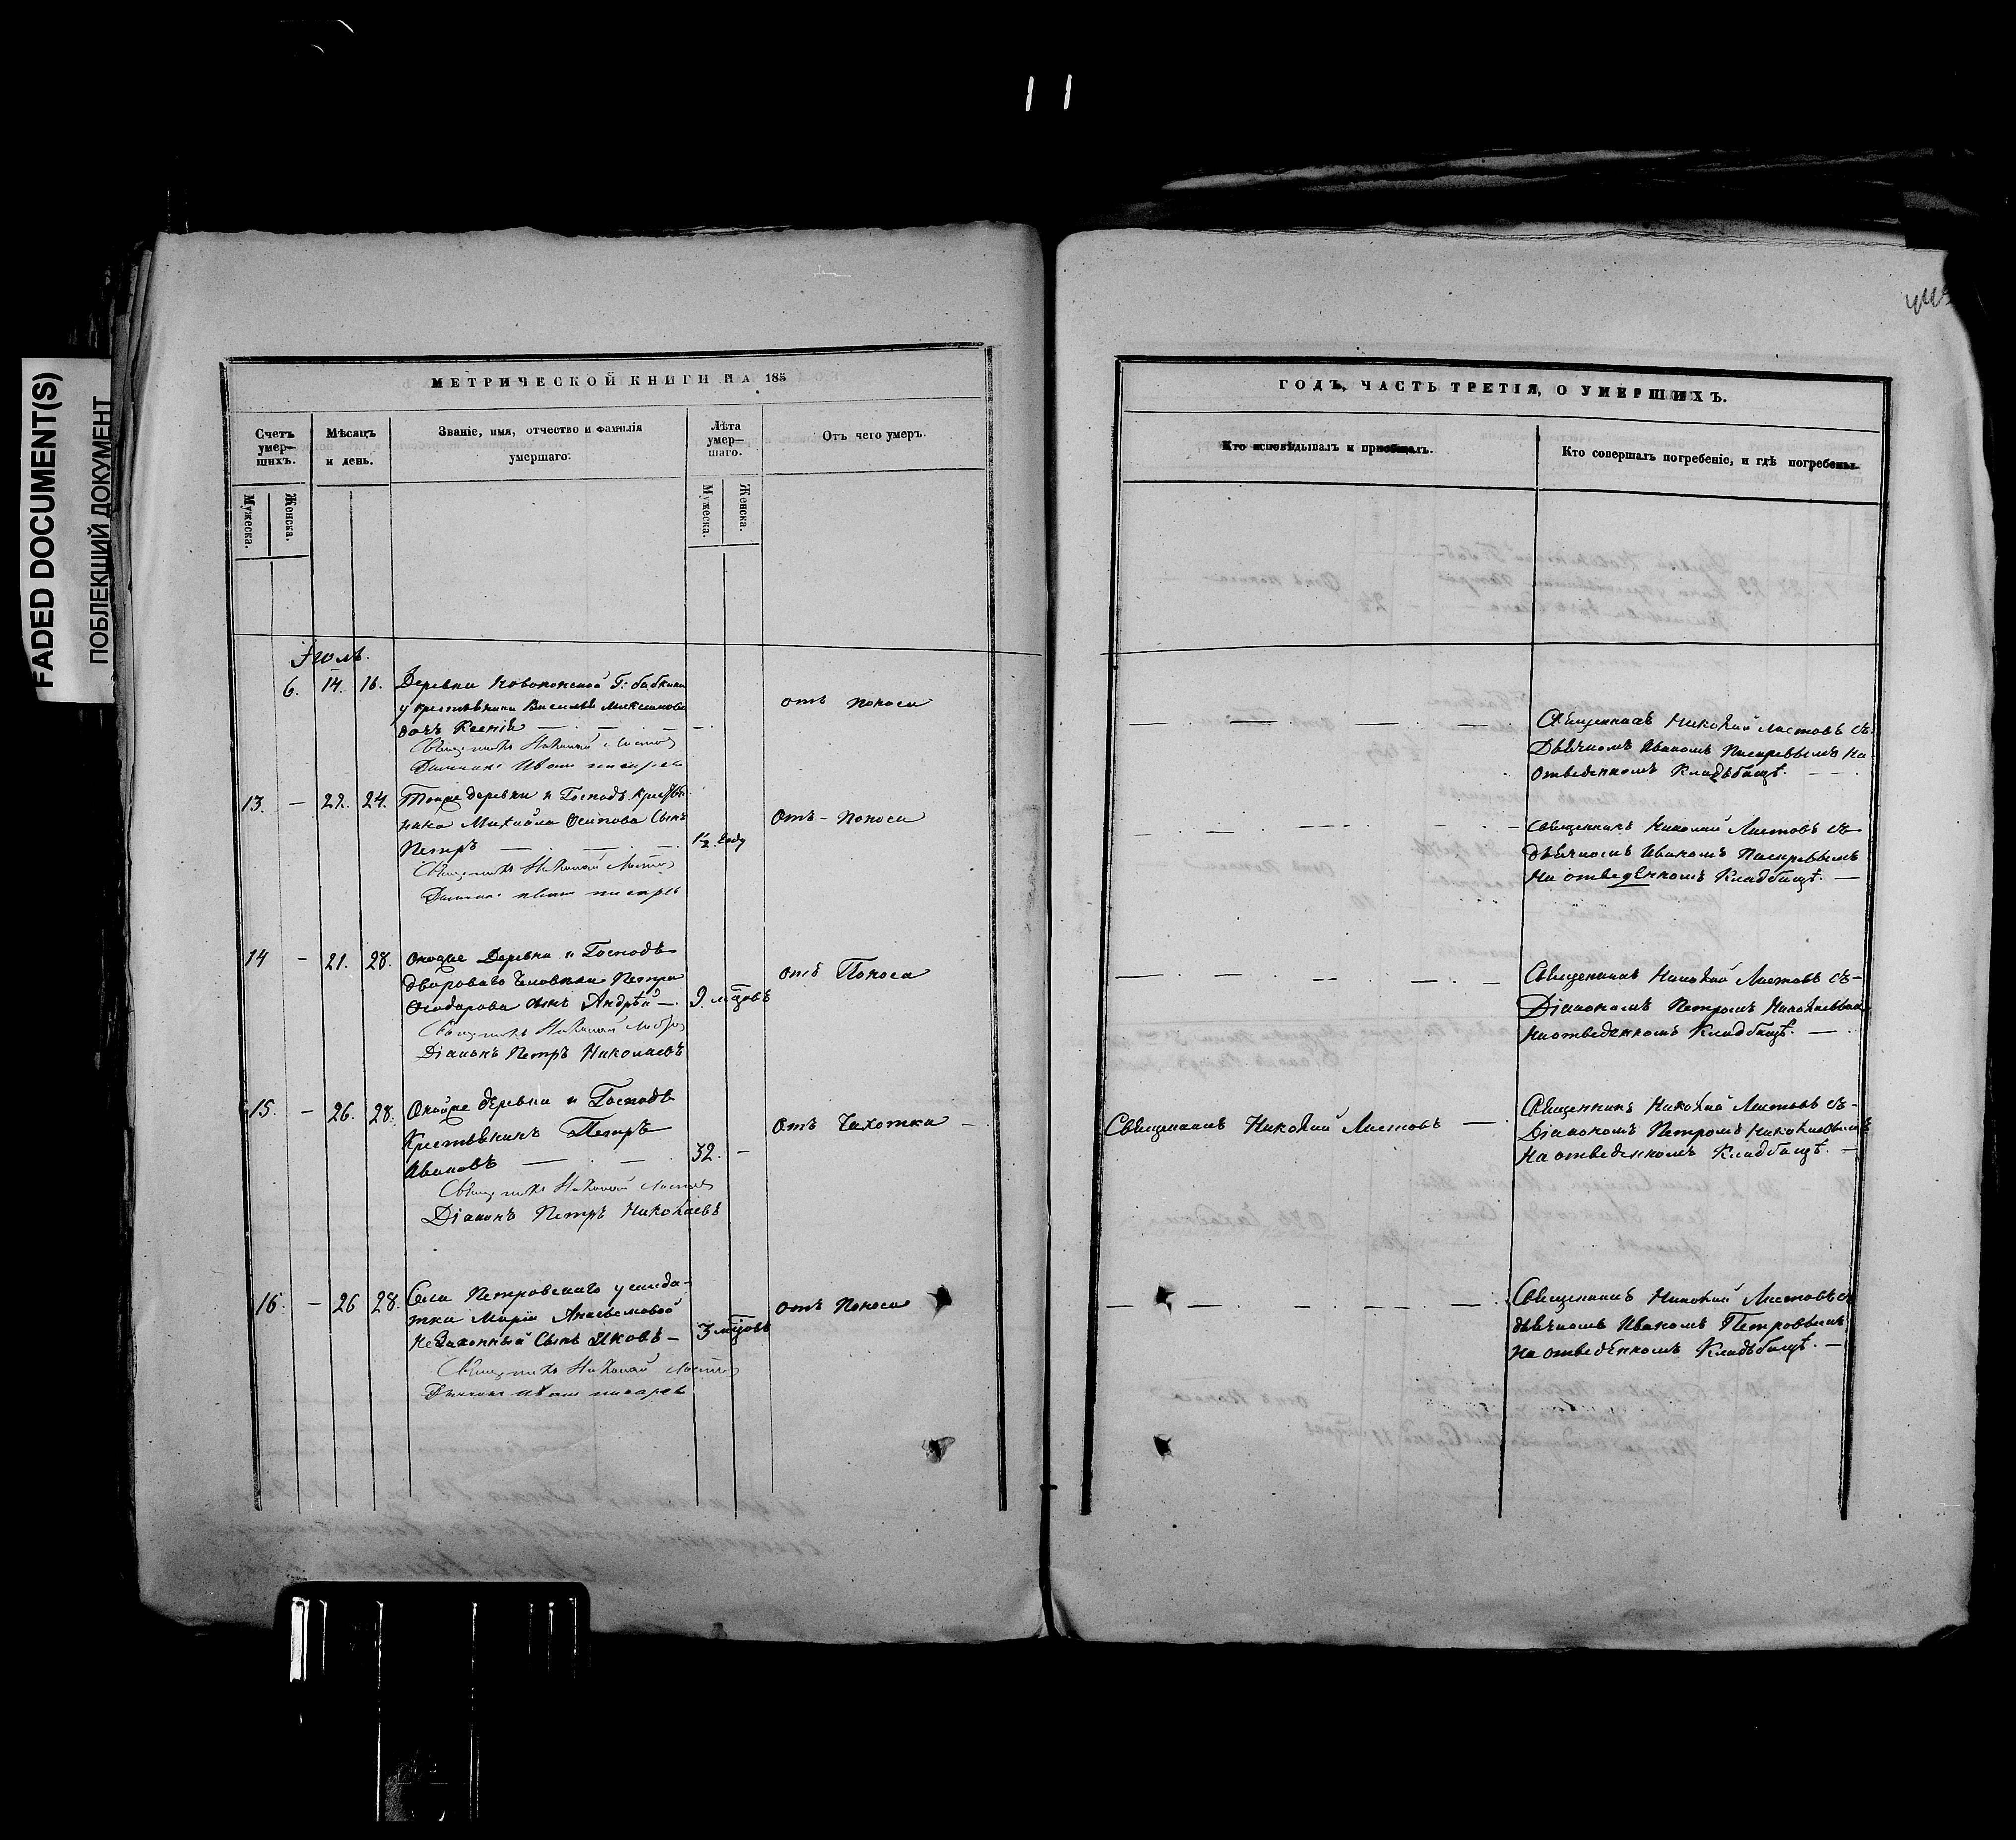 FADED DOCUMENT(S)
ПОБЛЕКШИЙ ДОКУМЕНТ
МЕТРИЧЕСКОЙ КНИГИ НА 185
Счетъ умер–шихъ.
Мужеска.
Женска.
Мѣсяцъ и день.
Званіе, имя, отчество и фамилія умершаго.
Лѣта умер–шаго.
Мужеска.
Женска.
Отъ чего умеръ.
ГОДЪ, ЧАСТЬ ТРЕТІЯ, О УМЕРШИХЪ.
Кто исповѣдывалъ и пріобщалъ.
Кто совершалъ погребеніе, и гдѣ погребены.
Іюль.
6. 14. 16. Деревни Г: бабкина
у крестьянина Василья Максимова
дочь Ксенія — —
Священникъ Николай Листов
Дьячекъ Иванъ писарев
отъ поноса
Священникъ Николай Листовъ съ
Дьячкомъ Иваномъ Писаревымъ на
отведенномъ Кладьбищѣ. —
13. — 22. 24. Тойже деревни и Господъ крестья
нина Михайла Осипова Сынъ
Петръ — — —
1½ году
Священникъ Николай Листов
Дьячекъ иван писарев
Отъ - поноса
Священникъ Николай Листовъ съ
дьячкомъ Иваномъ Писаревымъ
на отведенномъ Кладбищѣ. —
14 — 21. 28. Оноже Деревни и Господъ
двороваго Человѣка Петра
Ѳеодорова сынъ Андрѣй —
9. мцовъ
Священникъ Николай Листов
Діаконъ Петръ Николаевъ
отъ Поноса
Священникъ Николай Листовъ съ-
Діакономъ Петромъ Николаевымъ
на отведенномъ Кладбищѣ. —
15. — 26. 28. Онойже деревни и Господъ
Крестьянинъ Петръ
Ивановъ — —
32. —
Священникъ Николай Листов
Діаконъ Петръ Николаевъ
Отъ Чахотки —
Священникъ Николай Листовъ —
Священникъ Николай Листовъ съ-
Діакономъ Петромъ Николаевымъ
на отведенномъ Кладбищѣ. —
16. — 26 28. Села Петровскаго у солда-
тки Маріи
незаконный Сынъ Яковъ —
3 мцовъ
Священникъ Николай Листов
Дьячекъ иван писарев
отъ Поноса
Священникъ Николай Листовъ съ
дьячкомъ Иваномъ Петровымъ
на отведенномъ Кладьбищѣ. —